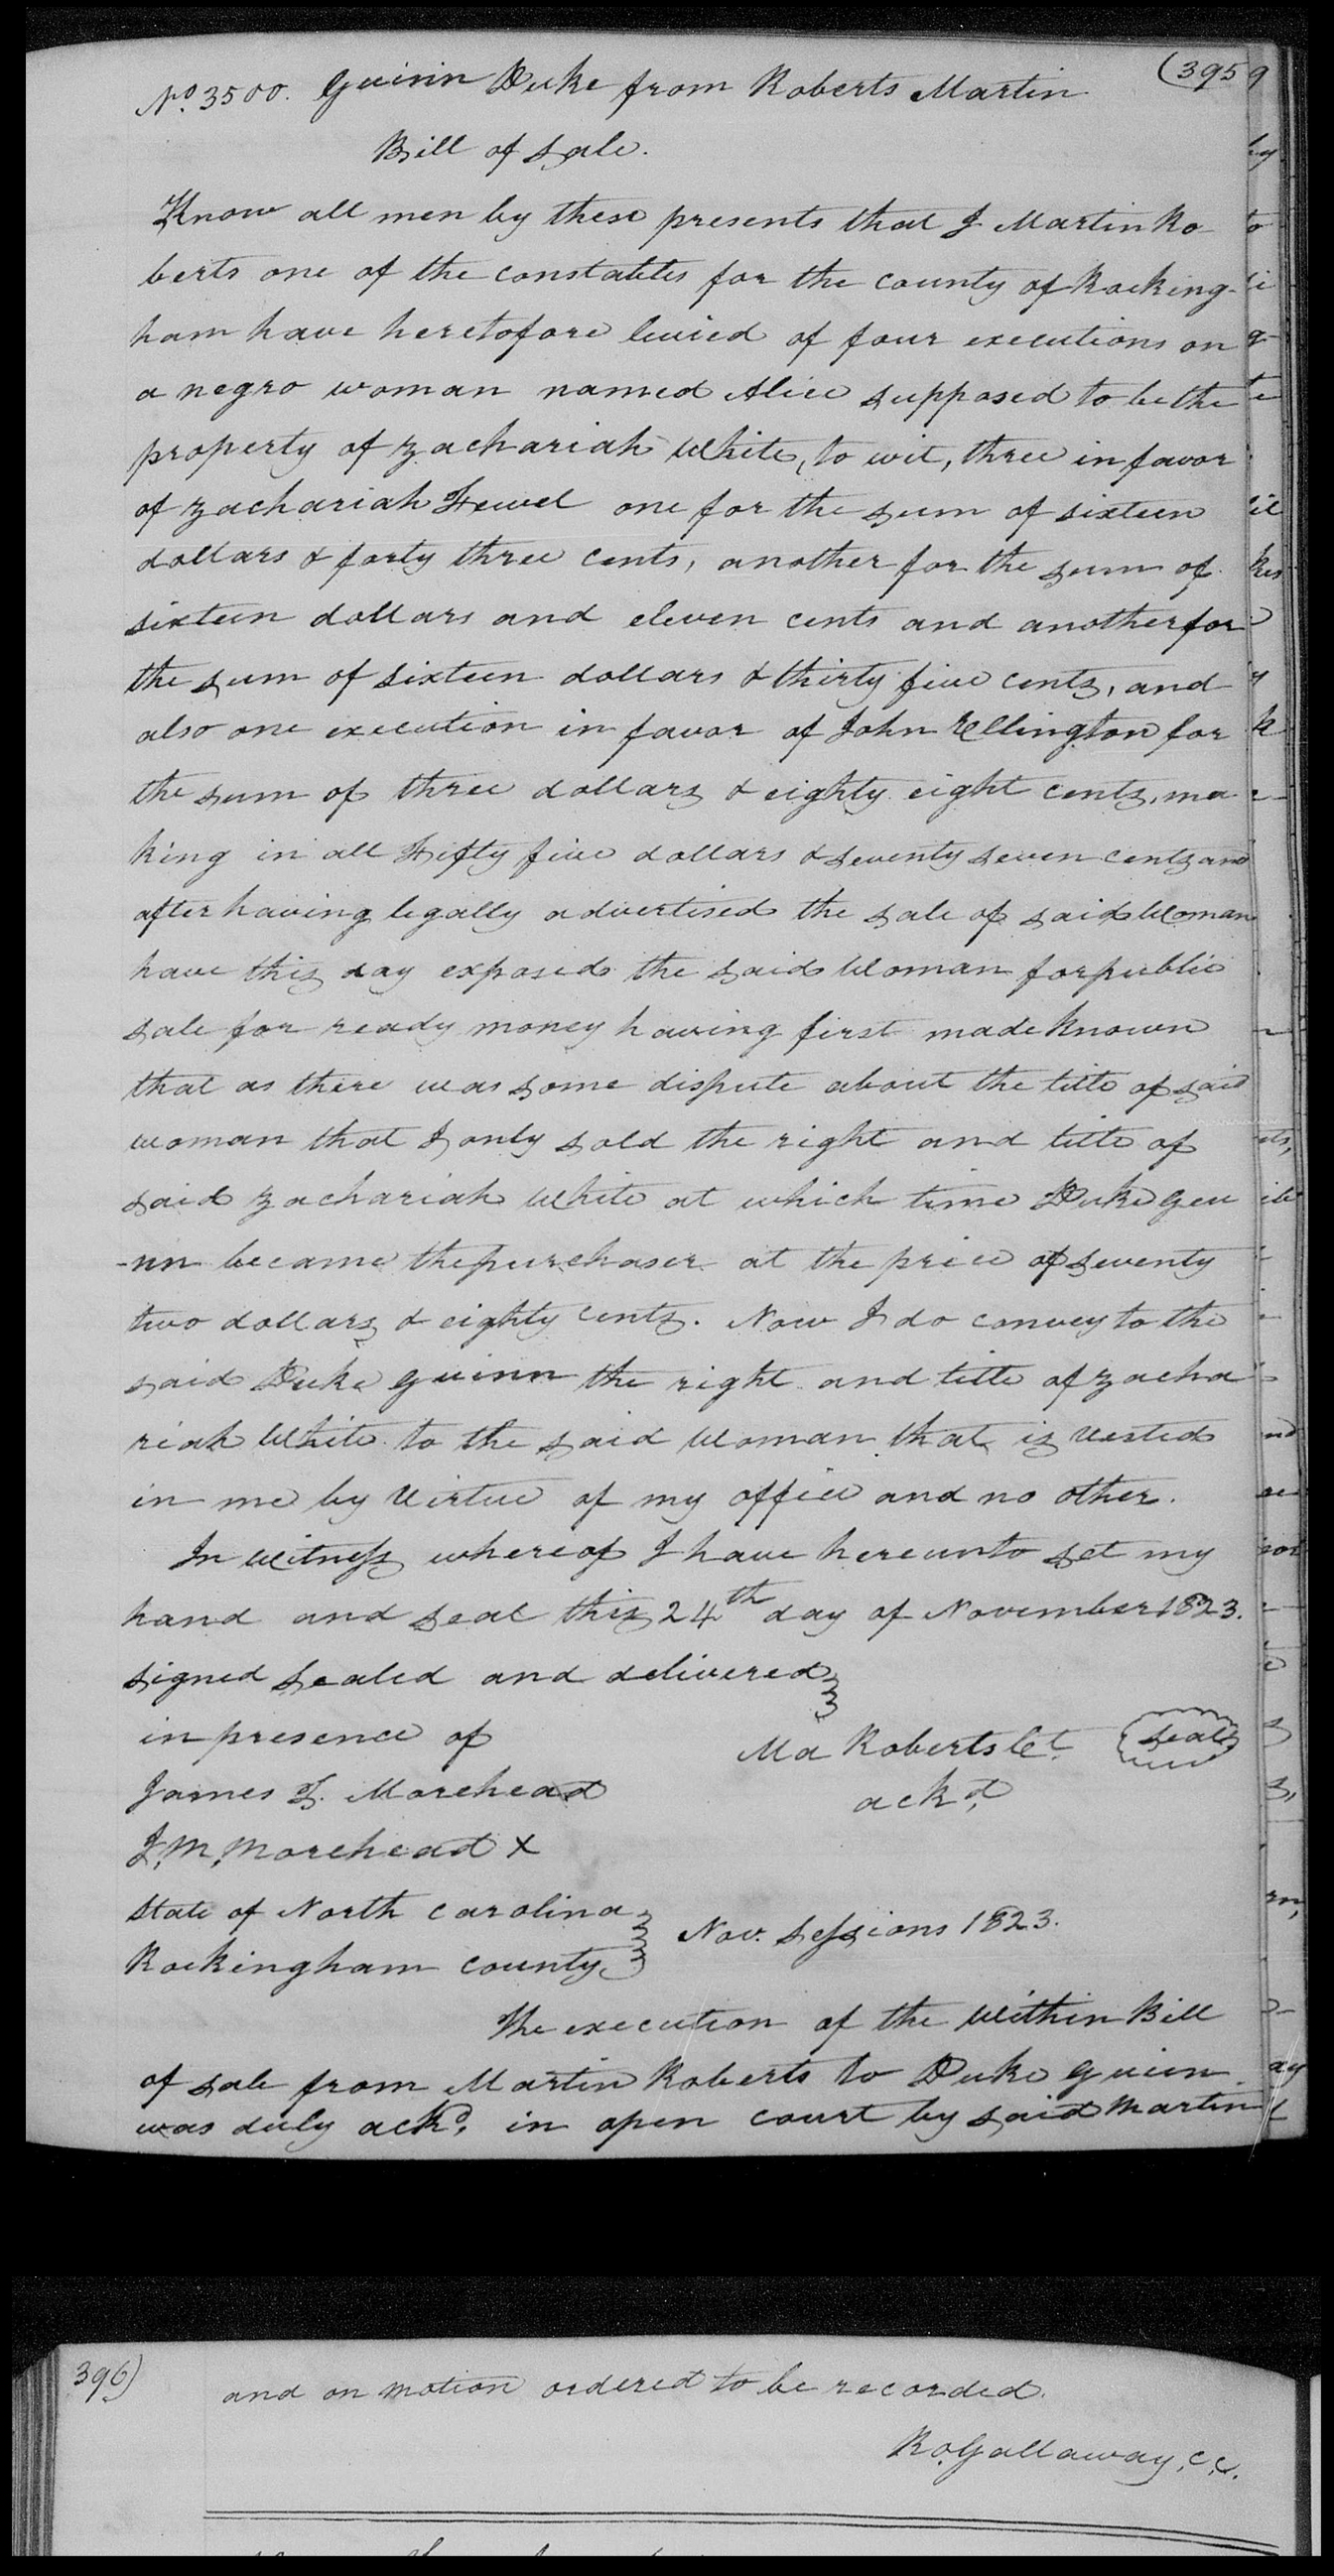 No. 3500. Guinn Duke from Roberts Martin (395
Bill of Sale.
Know all men by these presents that I Martin Ro
berts one of the constables for the county of Rocking-
ham have heretofore levied of four executions on
a negro woman named Alice supposed to be the
property of Zachariah White, to wit, three in favor
of Zachariah Fewel one for the sum of sixteen
dollars & forty three cents, another for the sum of
sixteen dollars and eleven cents and another for
the sum of sixteen dollars & thirty five cents, and
also one execution in favor of John Ellington for
the sum of three dollars & eighty eight cents, ma
king in all Fifty five dollars & seventy seven cents and
after having legally advertised the sale of said Woman
have this day exposed the said Woman for public
sale for ready money having first made known
that as there was some dispute about the title of said
woman that I only sold the right and title of
said Zachariah White at which time Duke Gui
-nn became the purchaser at the price of seventy
two dollars & eighty cents. Now I do convey to the
said Duke Guinn the right and title of Zacha
riah White to the said Woman that is Vested
in me by Virtue of my office and no other.
In Witness whereof I have hereunto set my
hand and seal this 24th day of November 1823.
signed sealed and delivered
in presence of
Ma Roberts Ct. Seal
James T. Morehead
ackd,
J, M, Morehead X
State of North Carolina
Rockingham County
Nov. Sessions 1823.
The execution of the Within Bill
of sale from Martin Roberts to Duke Guinn
was duly ackd, in open court by said Martin
396)
and on motion ordered to be recorded.
Ro, Gallaway, C, C,